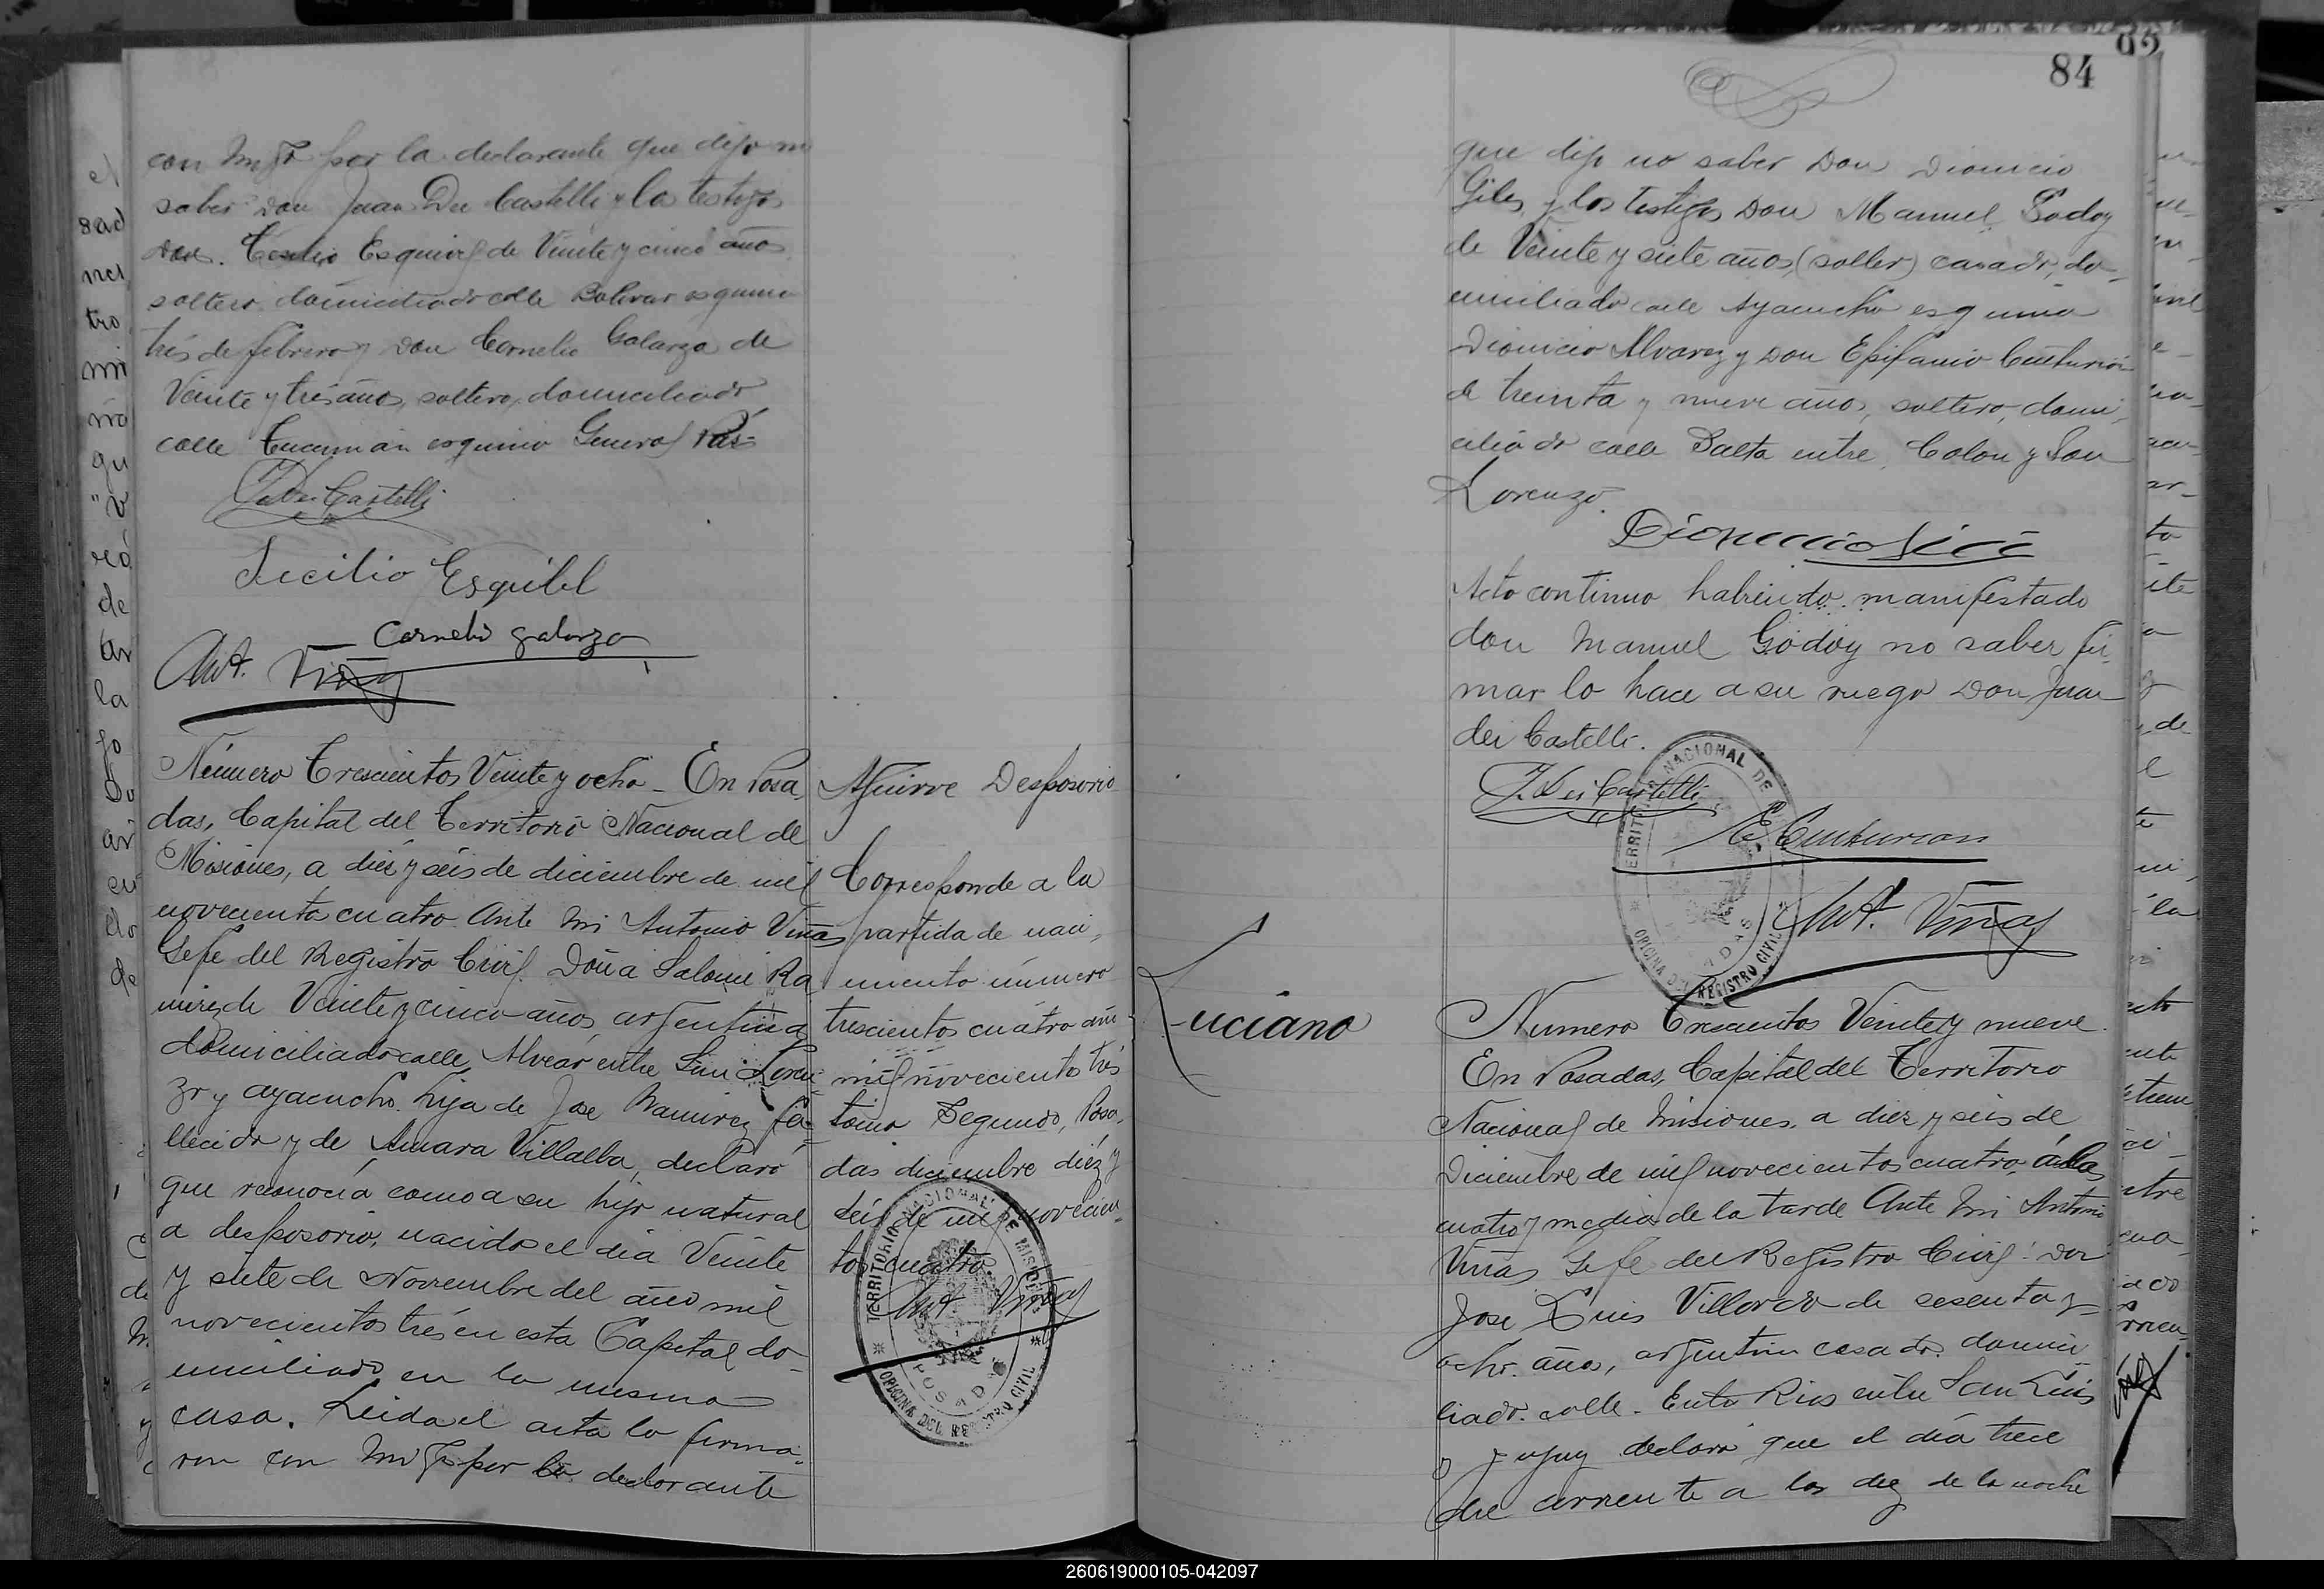 con migo por la declarante que dijo no
saber Don Juan Dei Castelli y los testigos
Don. Cecilio Esquivel de Veinte y cinco años
soltero domiciliado calle Bolivar esquina
trés de febrero y Don Cornelio Galarza de
Veinte y trés años, soltero, domiciliado
calle Tucumán esquina General Paz
J. Dei Castelli
Cecilio Esquibel
Cornelio galarza
Ant. Viñas
Número Trescientos Veinte y ocho - En Posa
das, Capital del Territorio Nacional de
Misiones, a diez y seis de diciembre de mil
novecientos cuatro. Ante mi Antonio Viñas
Gefe del Registro Civil Doña Salomé Ra
mirez de Veinte y cinco años argentina
domiciliado calle Alvear entre San Loren
zo y ayacucho. hija de Jose Ramirez fa-
llecido y de Amara Villalba, declaró
que reconocía como a su hijo natural
a desposorio, nacido el día Veinte
y siete de Noviembre del año mil
novecientos trés en esta Capital do-
miciliado en la misma
casa. Leida el acta la firma-
ron con migo por la declarante
Aguirre Desposorio
Corresponde a la
partida de naci,
miento número
trescientos cuatro año
mil novecientos trés
tomo Segundo, Posa,
das diciembre diéz y
seis de mil novecien-
tos cuatro.
Ant. Viñas
TERRITORIO NACIONAL DE MISIONES
POSADAS
OFICINA DEL REGISTRO CIVIL
84
92
que dijo no saber Don Dionicio
Giles y los testigos Don Manuel Godoy
de Veinte y siete años, (solter) casado, do-
miciliado calle Ayacucho esquina
Dionicio Alvarez y Don Epifanio Centurión
de treinta y nueve años, soltero, domi,
ciliado calle Salta entre Colon y San
Lorenzo.
Acto continuo habiendo manifestado
don Manuel Godoy no saber fir,
mar lo hace a su ruego Don Juan
dei Castelli.
J. Dei Castelli
E Centurion
Ant. Viñas
TERRITORIO NACIONAL DE
POSADAS
OFICINA DEL REGISTRO CIVIL
Luciano
Numero Trescientos Veinte y nueve.
En Posadas, Capital del Territorio
Nacional de Misiones, a diez y seis de
Diciembre de mil novecientos cuatro á las
cuatro y media de la tarde Ante mi Antonio
Viñas Gefe del Registro Civil: Don
Jose Luis Villordo de sesenta y
ocho años, argentino casado. domici
liado. calle. Entre Rios entre San Luis
y Jujuy declaró que el día trece
del corriente a las diez de la noche
260619000105-042097